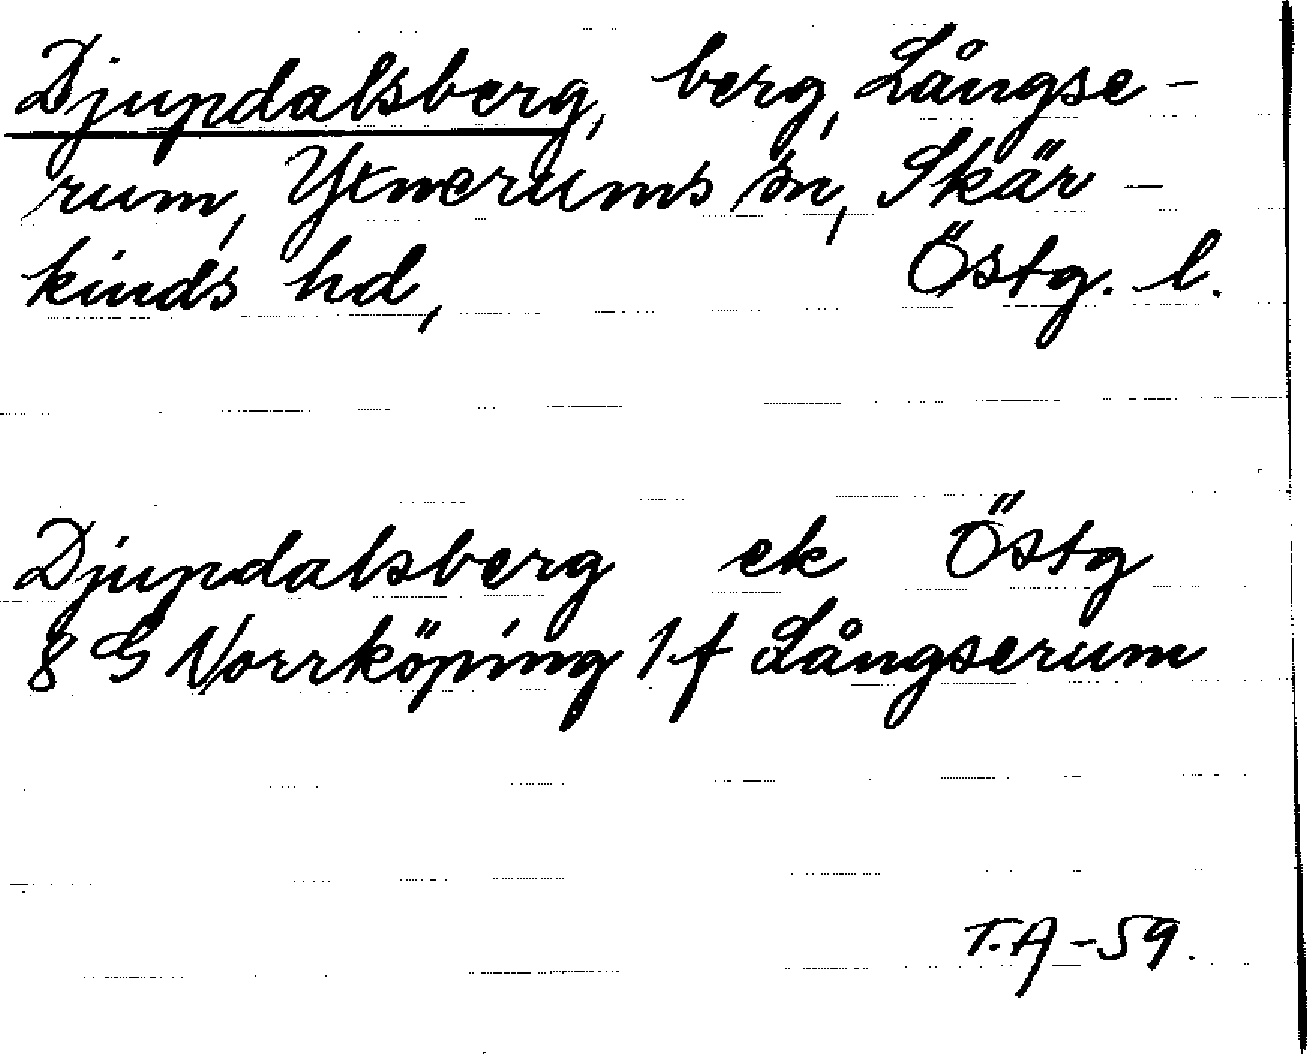 Djupdalsberg, berg, Långse-
rum, Ytnerums sn, Skär-
kinds hd, Östg. l.
Djupdalsberg ek Östg
8 G Norrköping 1 f Långserum
T.A-59.